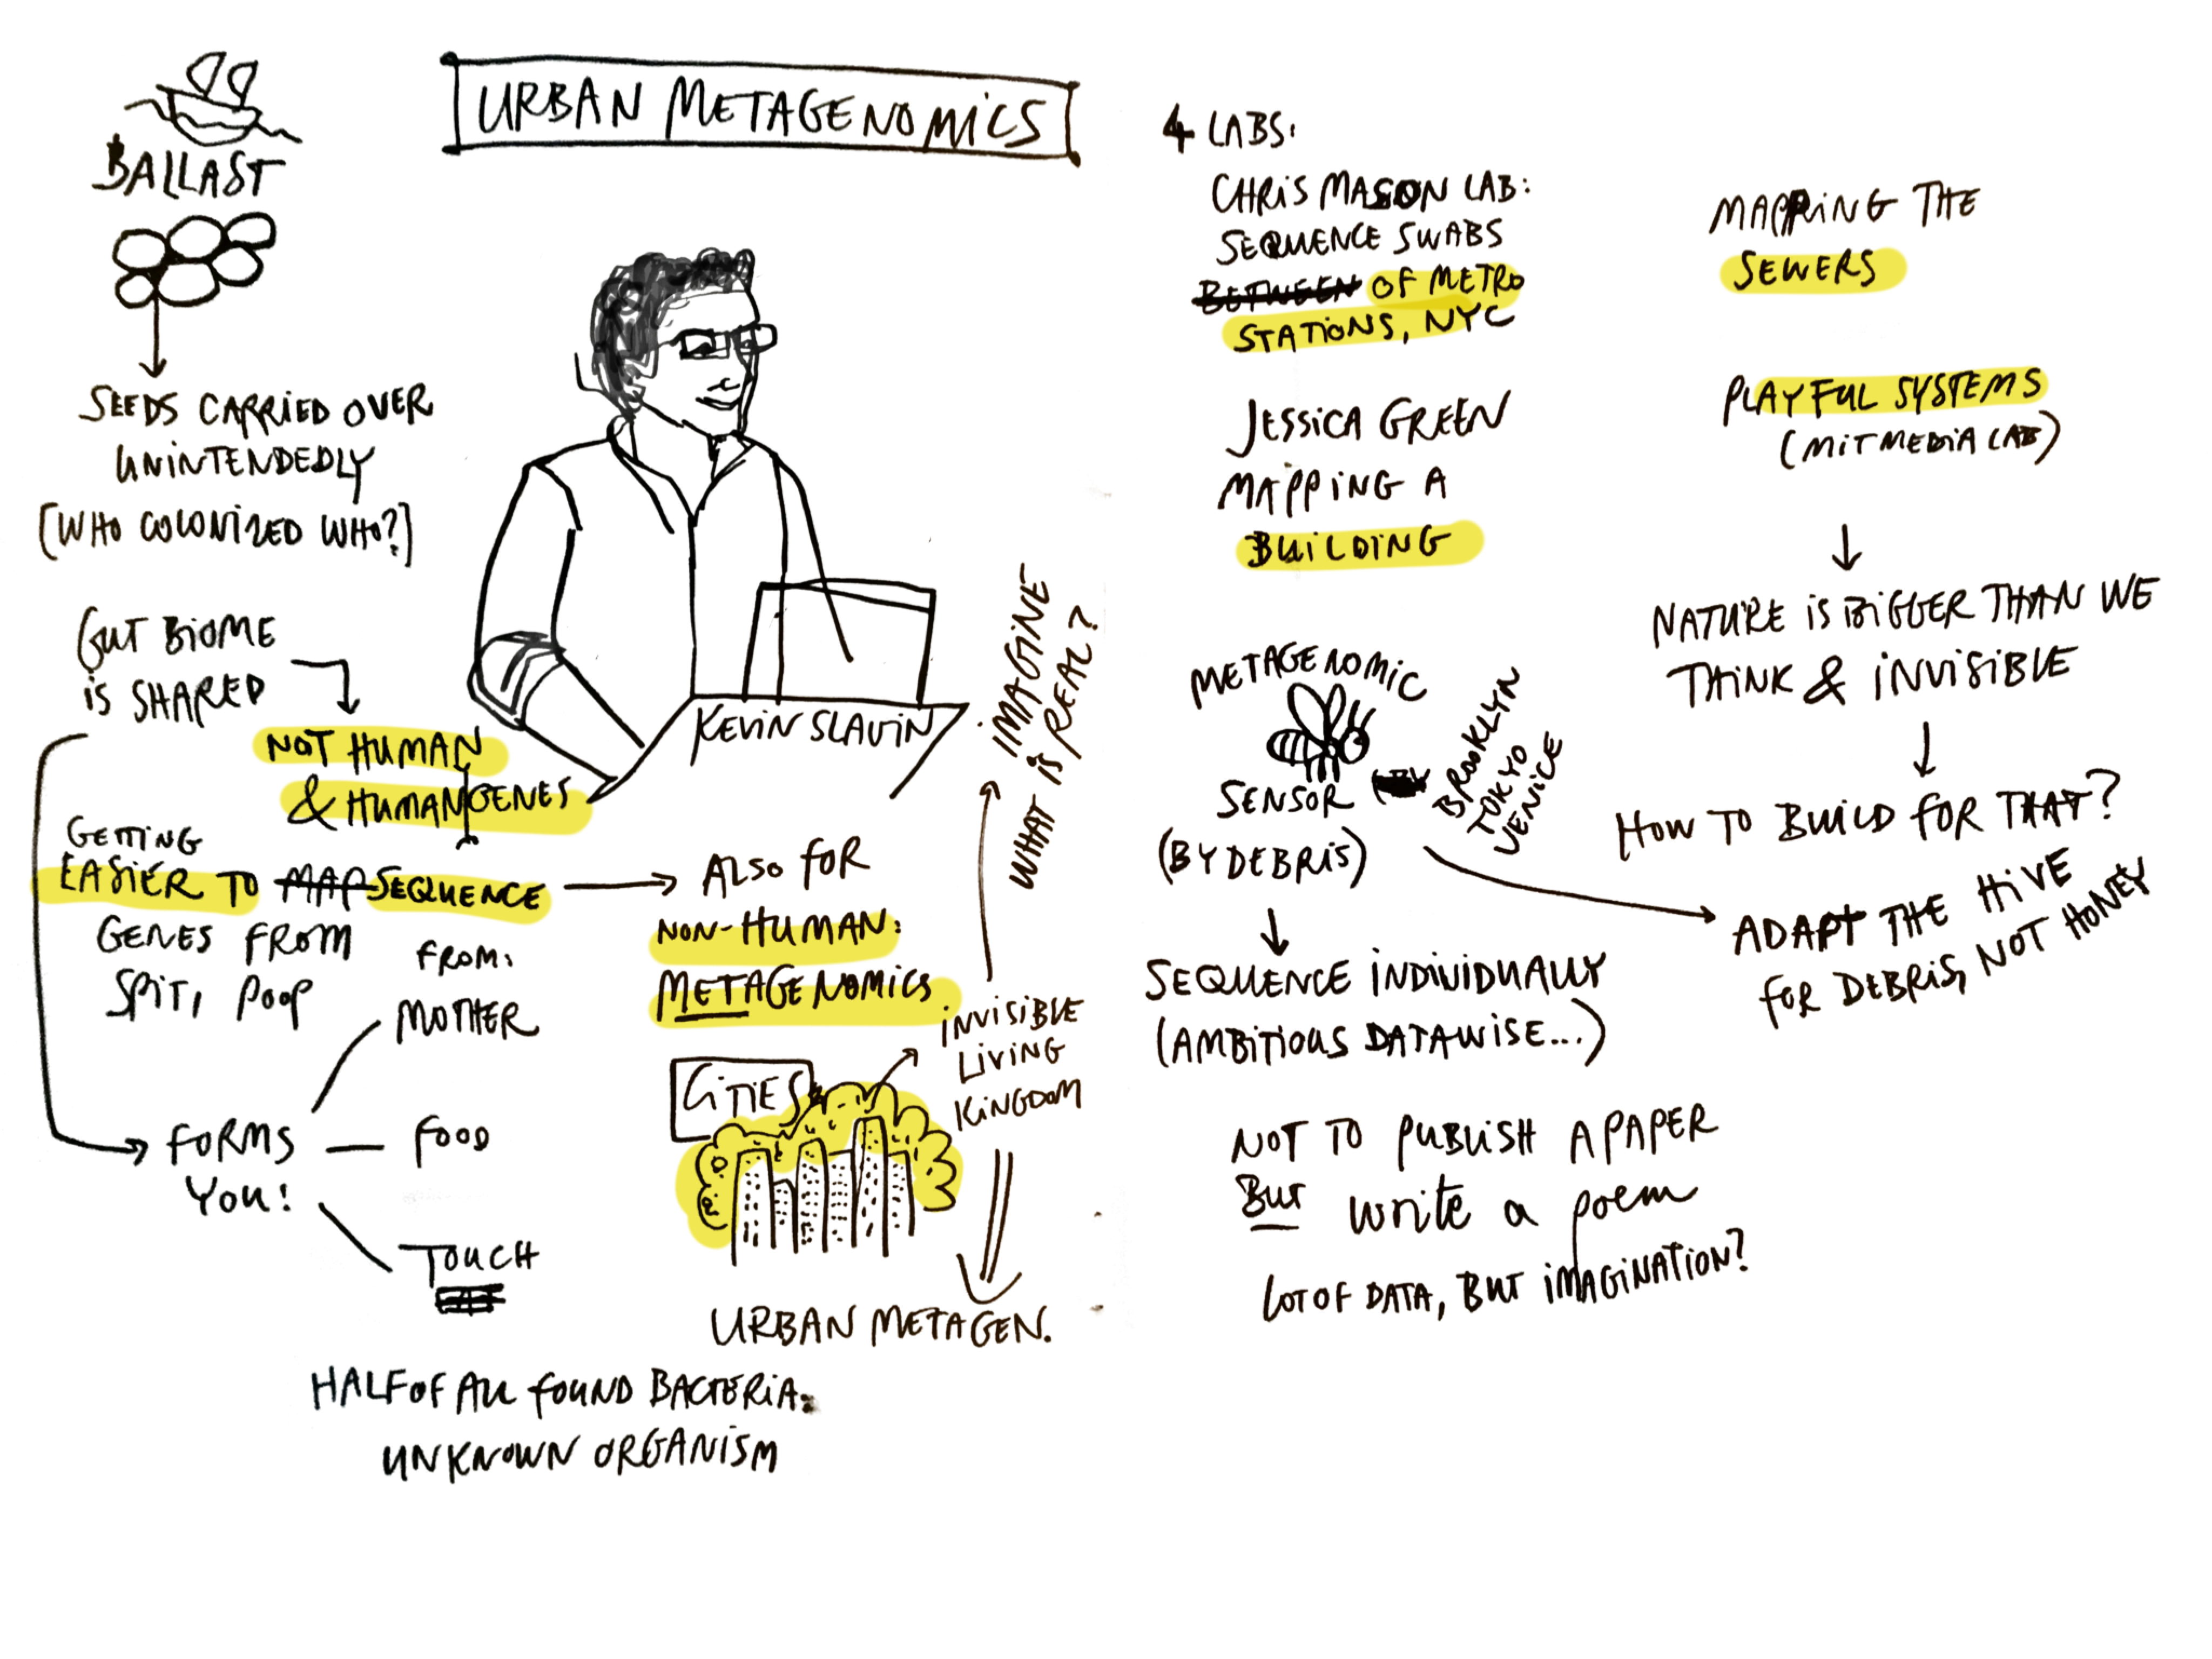 URBAN METAGENOMICS
BALLAST
SEEDS CARRIED OVER
UNINTENDEDLY
[WHO COLONIZED WHO?]
GUT BIOME
IS SHARED
NOT HUMAN
& HUMAN GENES
GETTING
EASIER TO MAP SEQUENCE
GENES FROM
SPIT, POOP
FORMS
YOU!
FROM:
MOTHER
FOOD
TOUCH
KEVIN SLAVIN
ALSO FOR
NON-HUMAN:
METAGENOMICS
CITIES
INVISIBLE
LIVING
KINGDOM
IMAGINE
WHAT IS REAL?
URBAN METAGEN.
HALF OF ALL FOUND BACTERIA:
UNKNOWN ORGANISM
4 LABS:
CHRIS MASON LAB:
SEQUENCE SWABS
BETWEEN OF METRO
STATIONS, NYC
JESSICA GREEN
MAPPING A
BUILDING
MAPPING THE
SEWERS
PLAYFUL SYSTEMS
(MIT MEDIA LAB)
NATURE IS BIGGER THAN WE
THINK & INVISIBLE
HOW TO BUILD FOR THAT?
METAGENOMIC
SENSOR
(BY DEBRIS)
BROOKLYN
TOKYO
VENICE
ADAPT THE HIVE
FOR DEBRIS, NOT HONEY
SEQUENCE INDIVIDUALLY
(AMBITIOUS DATAWISE...)
NOT TO PUBLISH A PAPER
BUT write a poem
LOT OF DATA, BUT IMAGINATION?